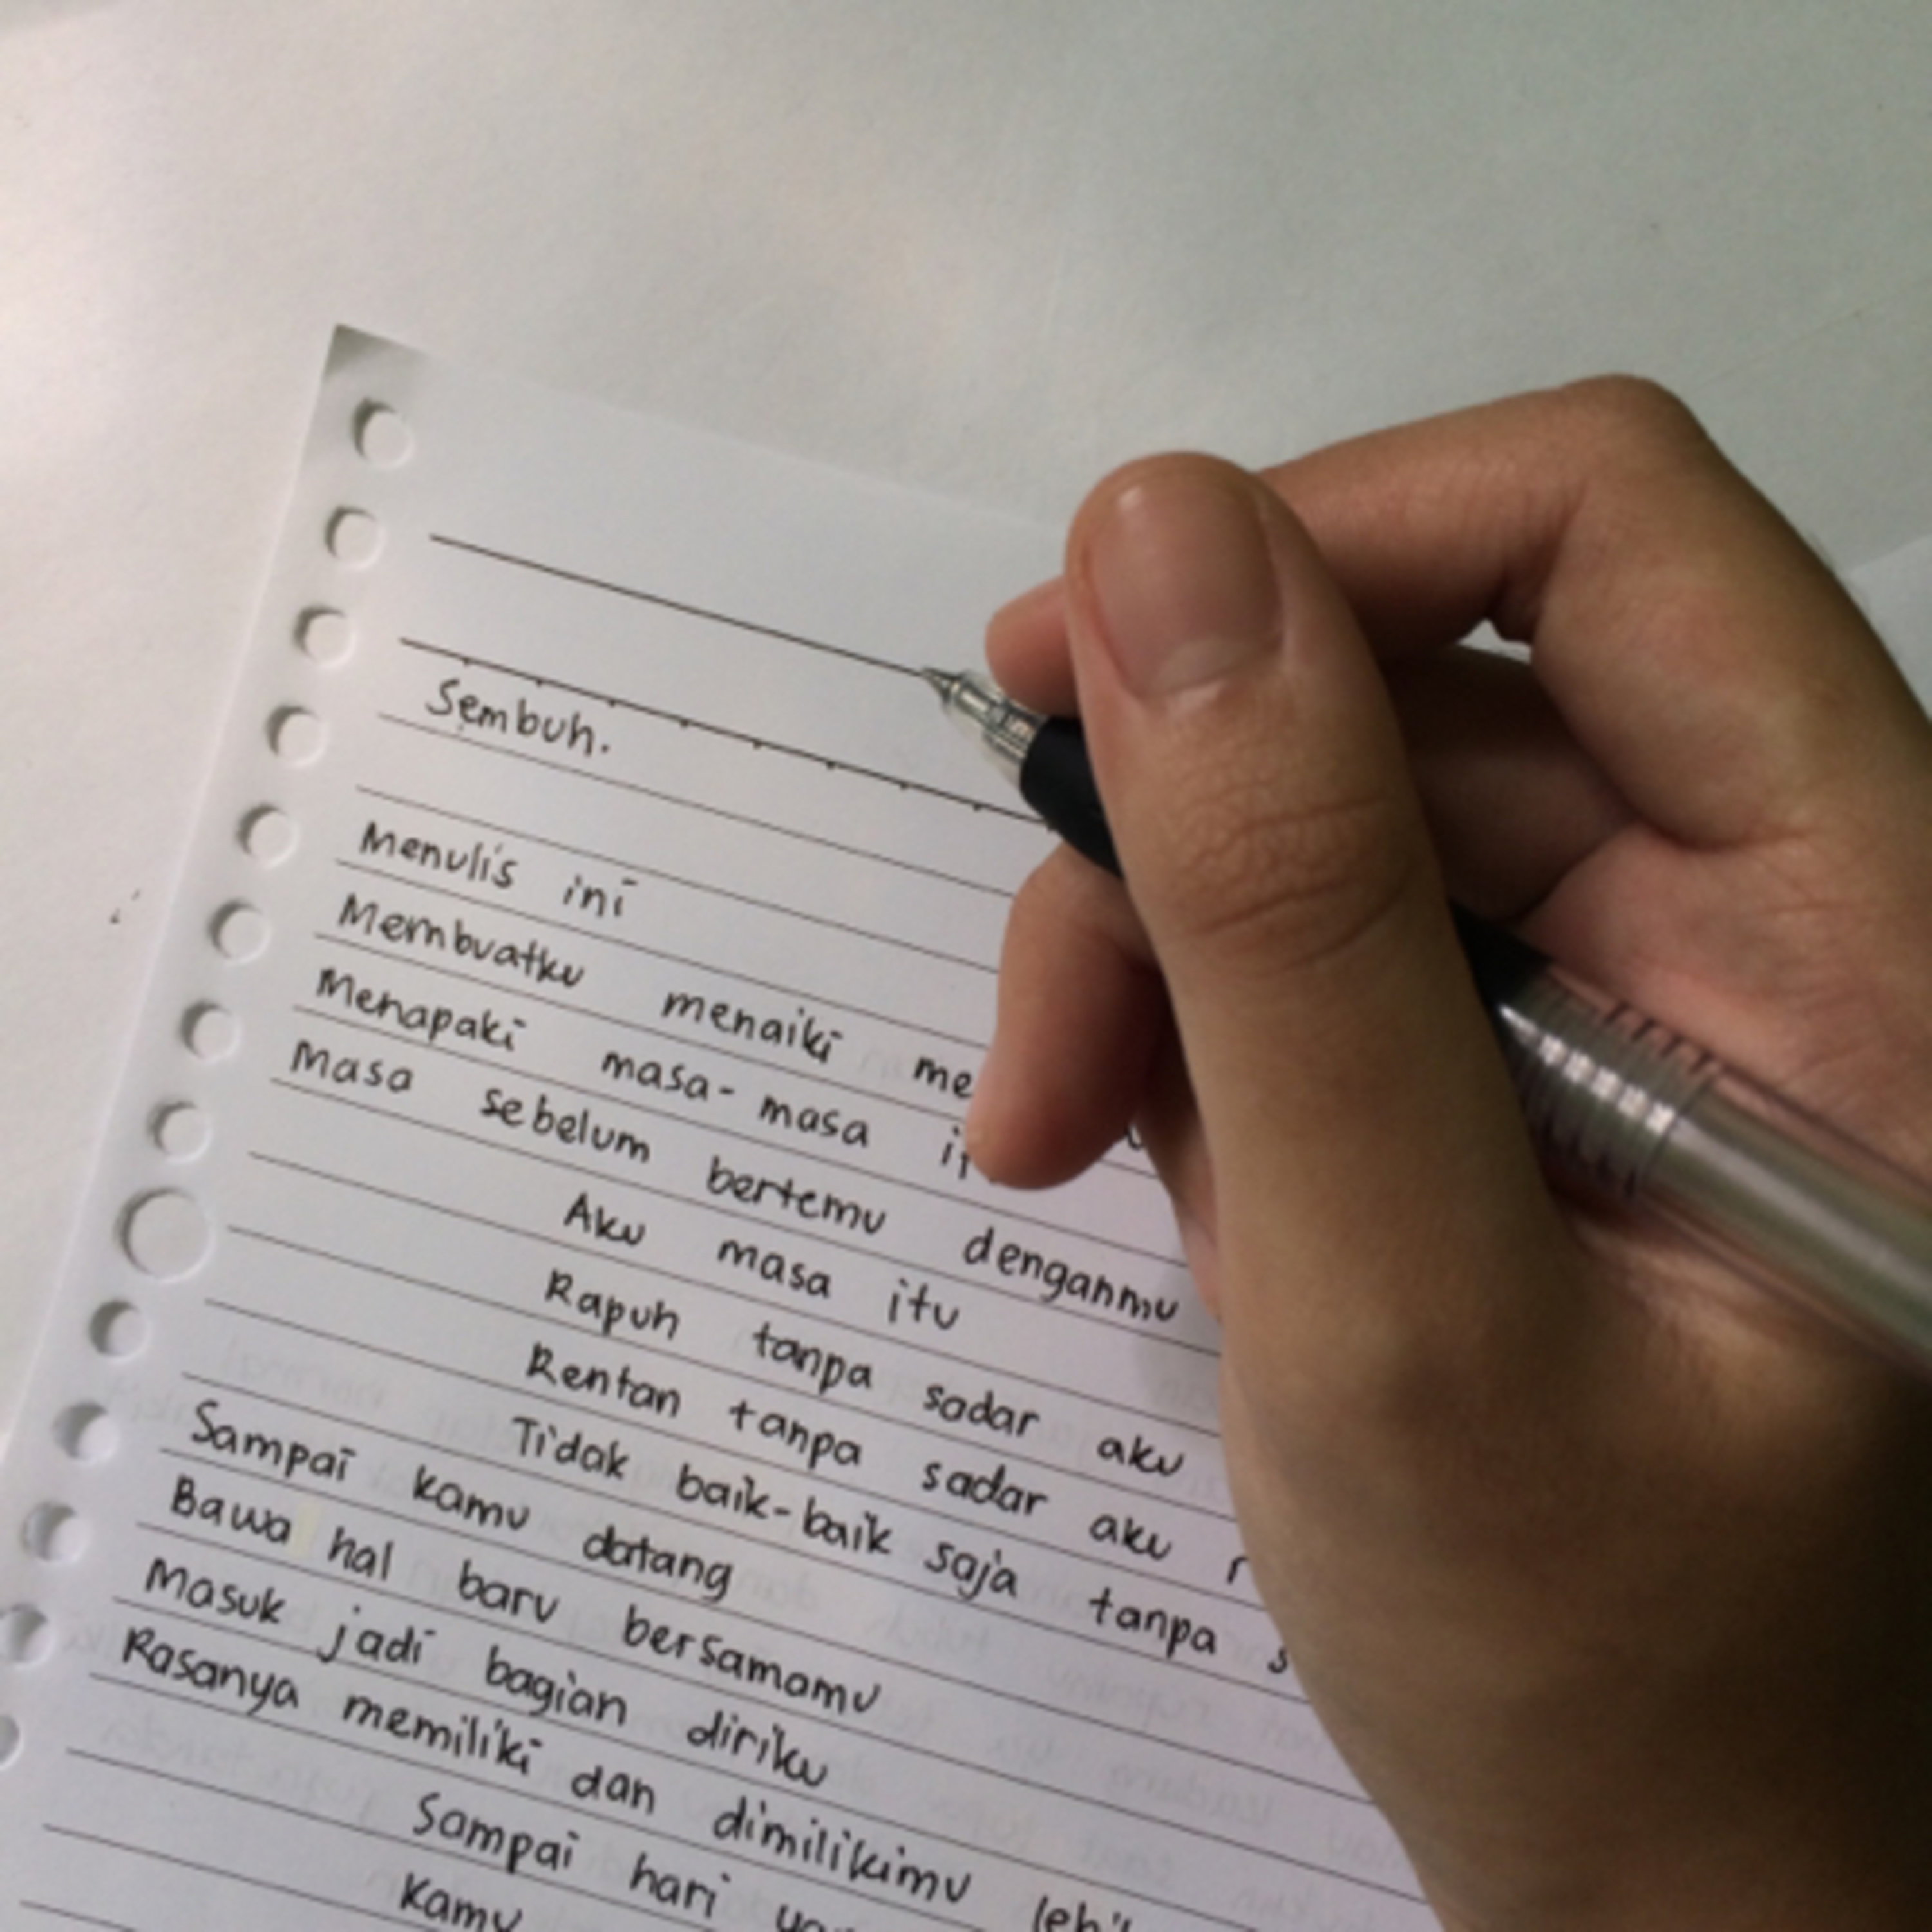 Sembuh.
Menulis ini
Membuatku menaiki
Menapaki masa-masa
Masa sebelum bertemu denganmu
Aku masa itu
Rapuh tanpa sadar aku
Rentan tanpa sadar aku
Tidak baik-baik saja tanpa
Sampai kamu datang
Bawa hal baru bersamamu
Masuk jadi bagian diriku
Rasanya memiliki dan dimilikimu
Sampai hari
Kamu